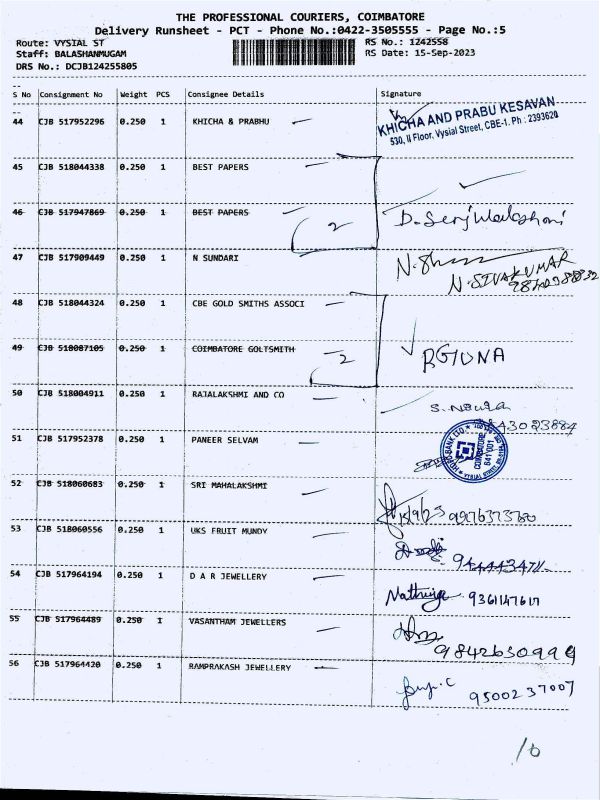 THE PROFESSIONAL COURIERS, COIMBATORE
Delivery Runsheet - PCT - Phone No.:0422-3505555 - Page No.:5
Route: VYSIAL ST RS No.: 1242558
Staff: BALASHANMUGAM RS Date: 15-Sep-2023
DRS No.: DCJB124255805
S No Consignment No Weight PCS Consignee Details Signature
44 CJB 517952296 0.250 1 KHICHA & PRABHU
KHICHA AND PRABU KESAVAN
530, II Floor, Vysial Street, CBE-1. Ph : 2393620
45 CJB 518044338 0.250 1 BEST PAPERS
46 CJB 517947869 0.250 1 BEST PAPERS 2
47 CJB 517909449 0.250 1 N SUNDARI
N. SIVAKUMAR
48 CJB 518044324 0.250 1 CBE GOLD SMITHS ASSOCI
49 CJB 518087105 0.250 1 COIMBATORE GOLTSMITH 2
50 CJB 518004911 0.250 1 RAJALAKSHMI AND CO
51 CJB 517952378 0.250 1 PANEER SELVAM
COIMBATORE
641 001
52 CJB 518060683 0.250 1 SRI MAHALAKSHMI
53 CJB 518060556 0.250 1 UKS FRUIT MUNDY
54 CJB 517964194 0.250 1 D A R JEWELLERY
9361147617
55 CJB 517964489 0.250 1 VASANTHAM JEWELLERS
9842630999
56 CJB 517964420 0.250 1 RAMPRAKASH JEWELLERY
9500237007
10